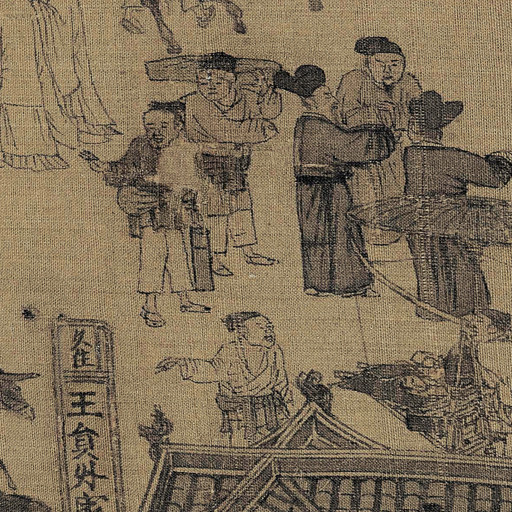 久住
王員外家